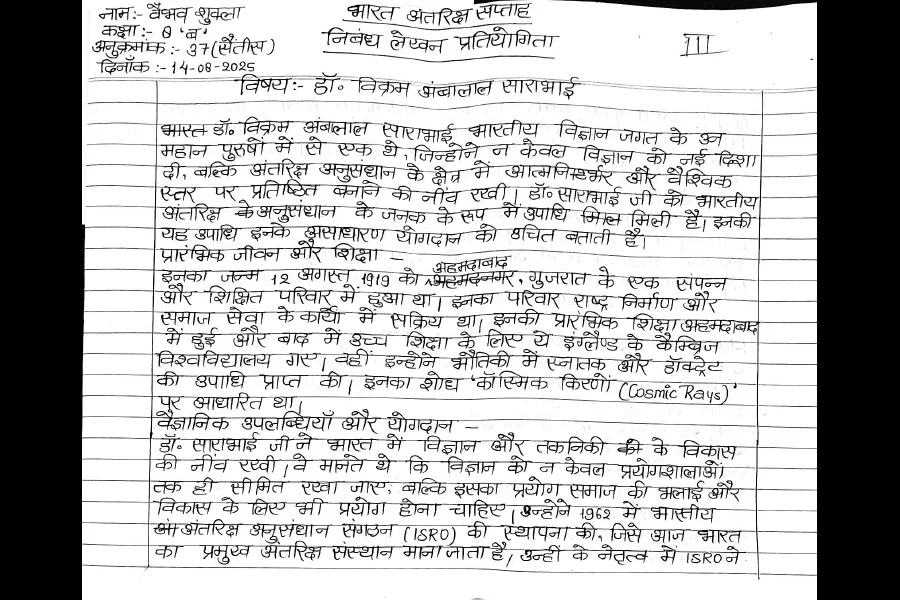 नाम:- वैभव शुक्ला
कक्षा:- 8 'ब'
अनुक्रमांक:- 37 (सैंतीस)
दिनाँक:- 14-08-2025
भारत अंतरिक्ष सप्ताह
निबंध लेखन प्रतियोगिता
III
विषय:- डॉ॰ विक्रम अंबालाल साराभाई
भारत डॉ॰ विक्रम अंबालाल साराभाई भारतीय विज्ञान जगत के उन
महान पुरुषों में से एक थे, जिन्होंने न केवल विज्ञान को नई दिशा
दी, बल्कि अंतरिक्ष अनुसंधान के क्षेत्र में आत्मनिर्भर और वैश्विक
स्तर पर प्रतिष्ठित बनाने की नींव रखी। डॉ॰ साराभाई जी को भारतीय
अंतरिक्ष के अनुसंधान के जनक के रूप में उपाधि मिल मिली है। इनकी
यह उपाधि इनके असाधारण योगदान को उचित बताती है।
प्रारंभिक जीवन और शिक्षा -
इनका जन्म 12 अगस्त 1919 को अहमदनगर अहमदाबाद, गुजरात के एक संपन्न
और शिक्षित परिवार में हुआ था। इनका परिवार राष्ट्र निर्माण और
समाज सेवा के कार्यों में सक्रिय था। इनकी प्रारंभिक शिक्षा अहमदाबाद
में हुई और बाद में उच्च शिक्षा के लिए ये इंग्लैण्ड के कैम्ब्रिज
विश्वविद्यालय गए। वहीं इन्होंने भौतिकी में स्नातक और डॉक्ट्रेट
की उपाधि प्राप्त की। इनका शोध 'कॉस्मिक किरणों (Cosmic Rays)'
पर आधारित था।
वैज्ञानिक उपलब्धियाँ और योगदान -
डॉ॰ साराभाई जी ने भारत में विज्ञान और तकनिकी की के विकास
की नींव रखी। वे मानते थे कि विज्ञान को न केवल प्रयोगशालाओं
तक ही सीमित रखा जाए, बल्कि इसका प्रयोग समाज की भलाई और
विकास के लिए भी प्रयोग होना चाहिए। उन्होंने 1962 में भारतीय
अंतरिक्ष अनुसंधान संगठन (ISRO) की स्थापना की, जिसे आज भारत
का प्रमुख अंतरिक्ष संस्थान माना जाता है, उन्हीं के नेतृत्व में ISRO ने